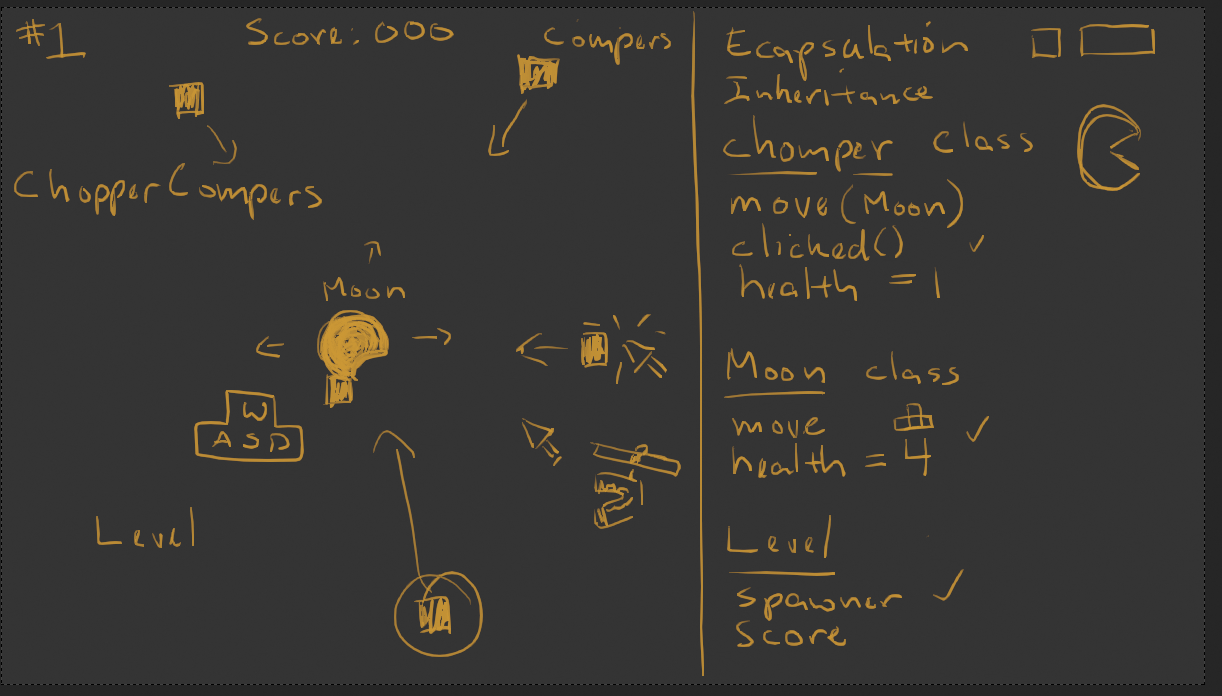 #1
Score: 000
Compers
ChopperCompers
Moon
W
A S D
Level
Ecapsulation
Inheritance
chomper class
move(Moon)
clicked() ✓
health = 1
Moon class
move ✓
health = 4
Level
spawner ✓
Score